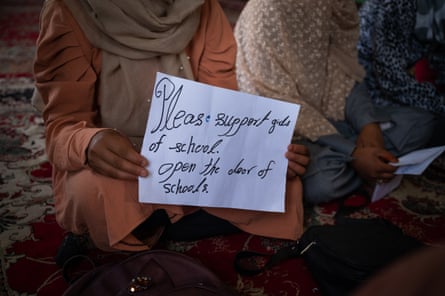 Please support girls
of school.
open the door of
schools.